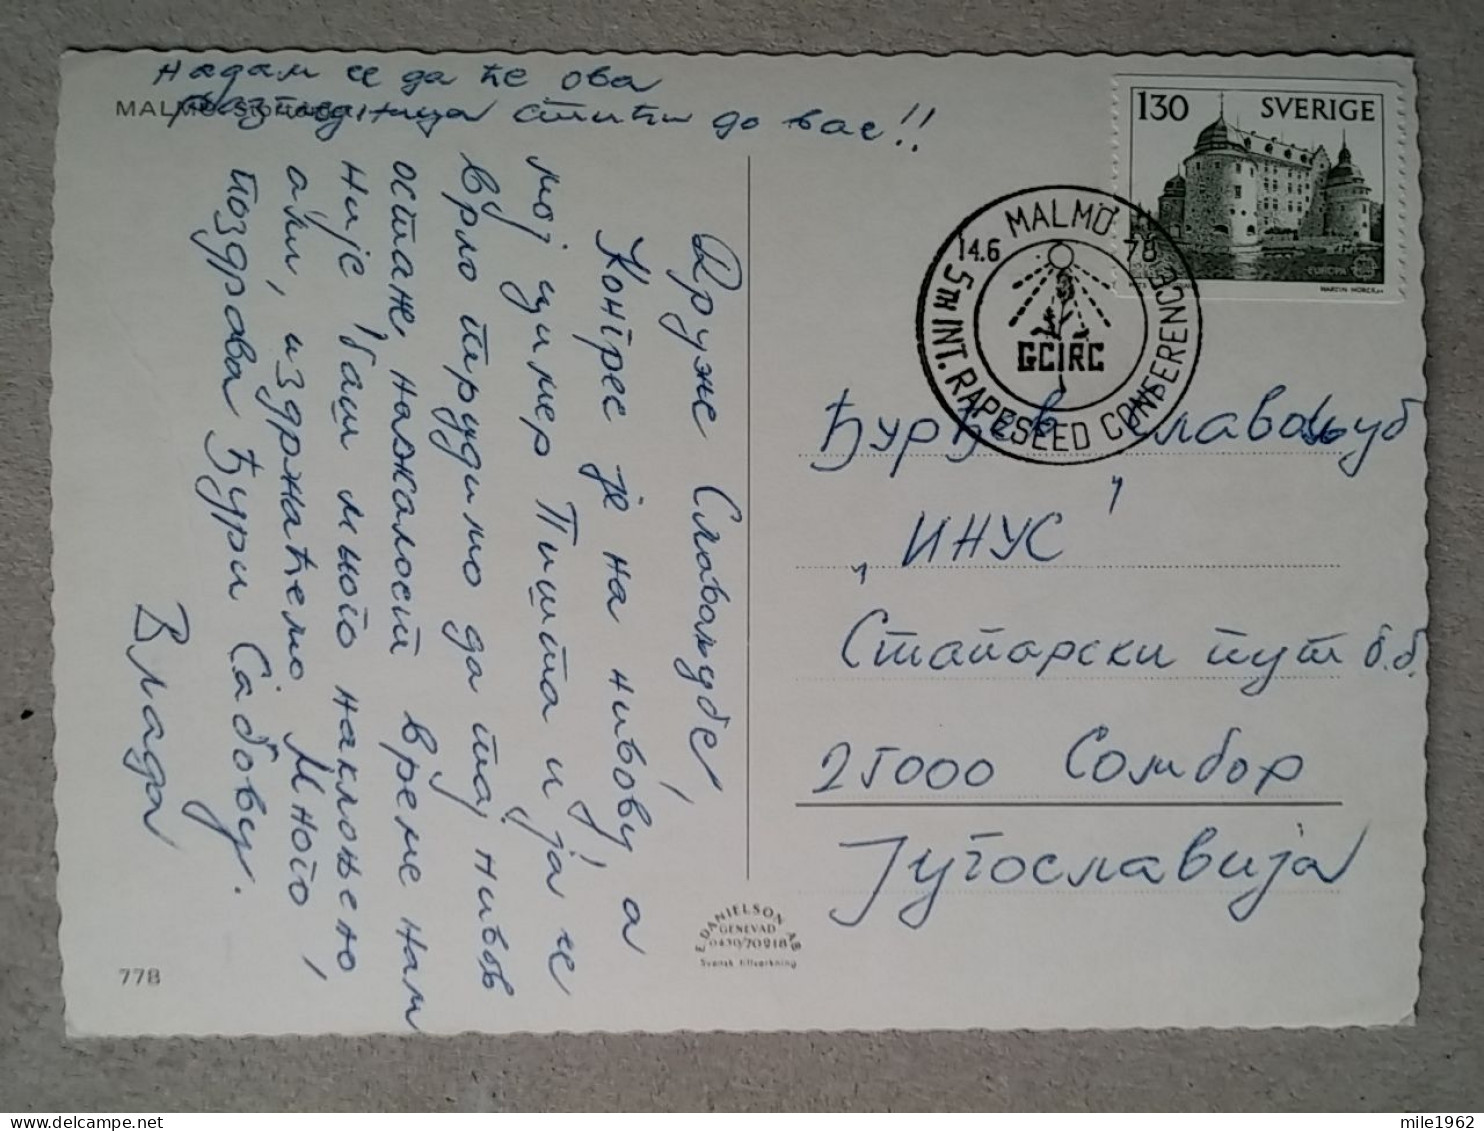 Надам се да ће ова
разгледница стићи до вас!!
MALMÖ
Друже Славољубе,
Конгрес је на нивоу, а
мој цимер Пишта и ја се
врло трудимо да тај ниво
остане, нажалост време нам
није баш много наклоњено
али, издржаћемо. Много
поздрава Ђури Сабовљу.
Влада
778
E. DANIELSON AB
GENEVAD
0430/70218
Svensk tillverkning
130 SVERIGE
EUROPA
MARTIN MÖRCK
MALMÖ
14.6 78
5TH INT. RAPESEED CONFERENCE
GCIRC
Ђурђев Славољуб
„ИНУС"
Стапарски пут б.б.
25000 Сомбор
Југославија
mile1962